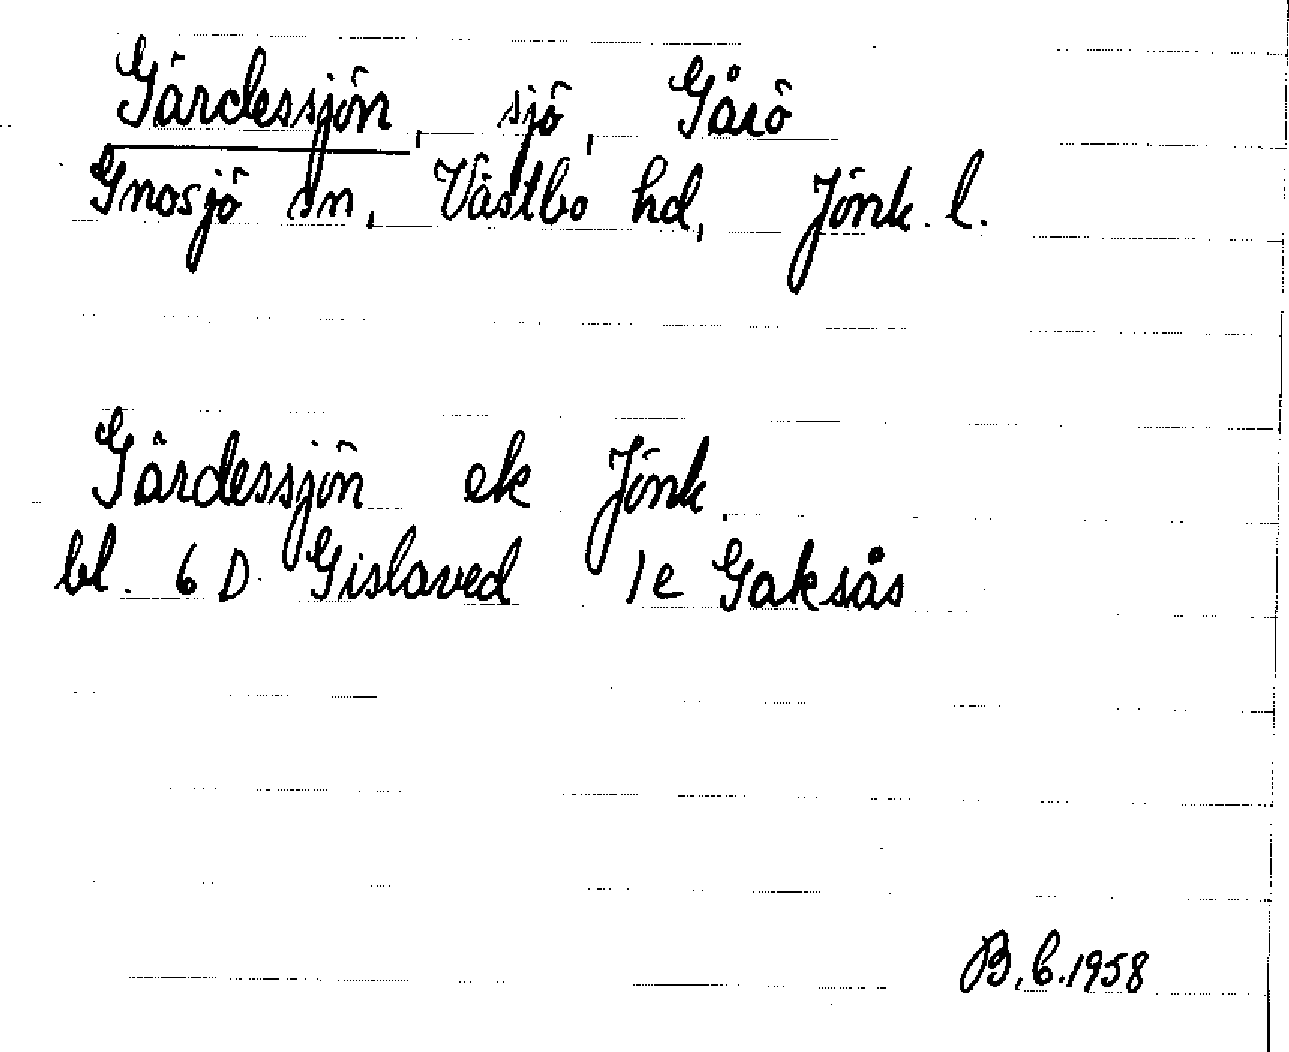 Gärdessjön, sjö, Gårö
Gnosjö sn, Västbo hd, Jönk. l.
Gärdessjön ek Jönk.
bl. 6 D Gislaved 1e Gaksås
B. b. 1958